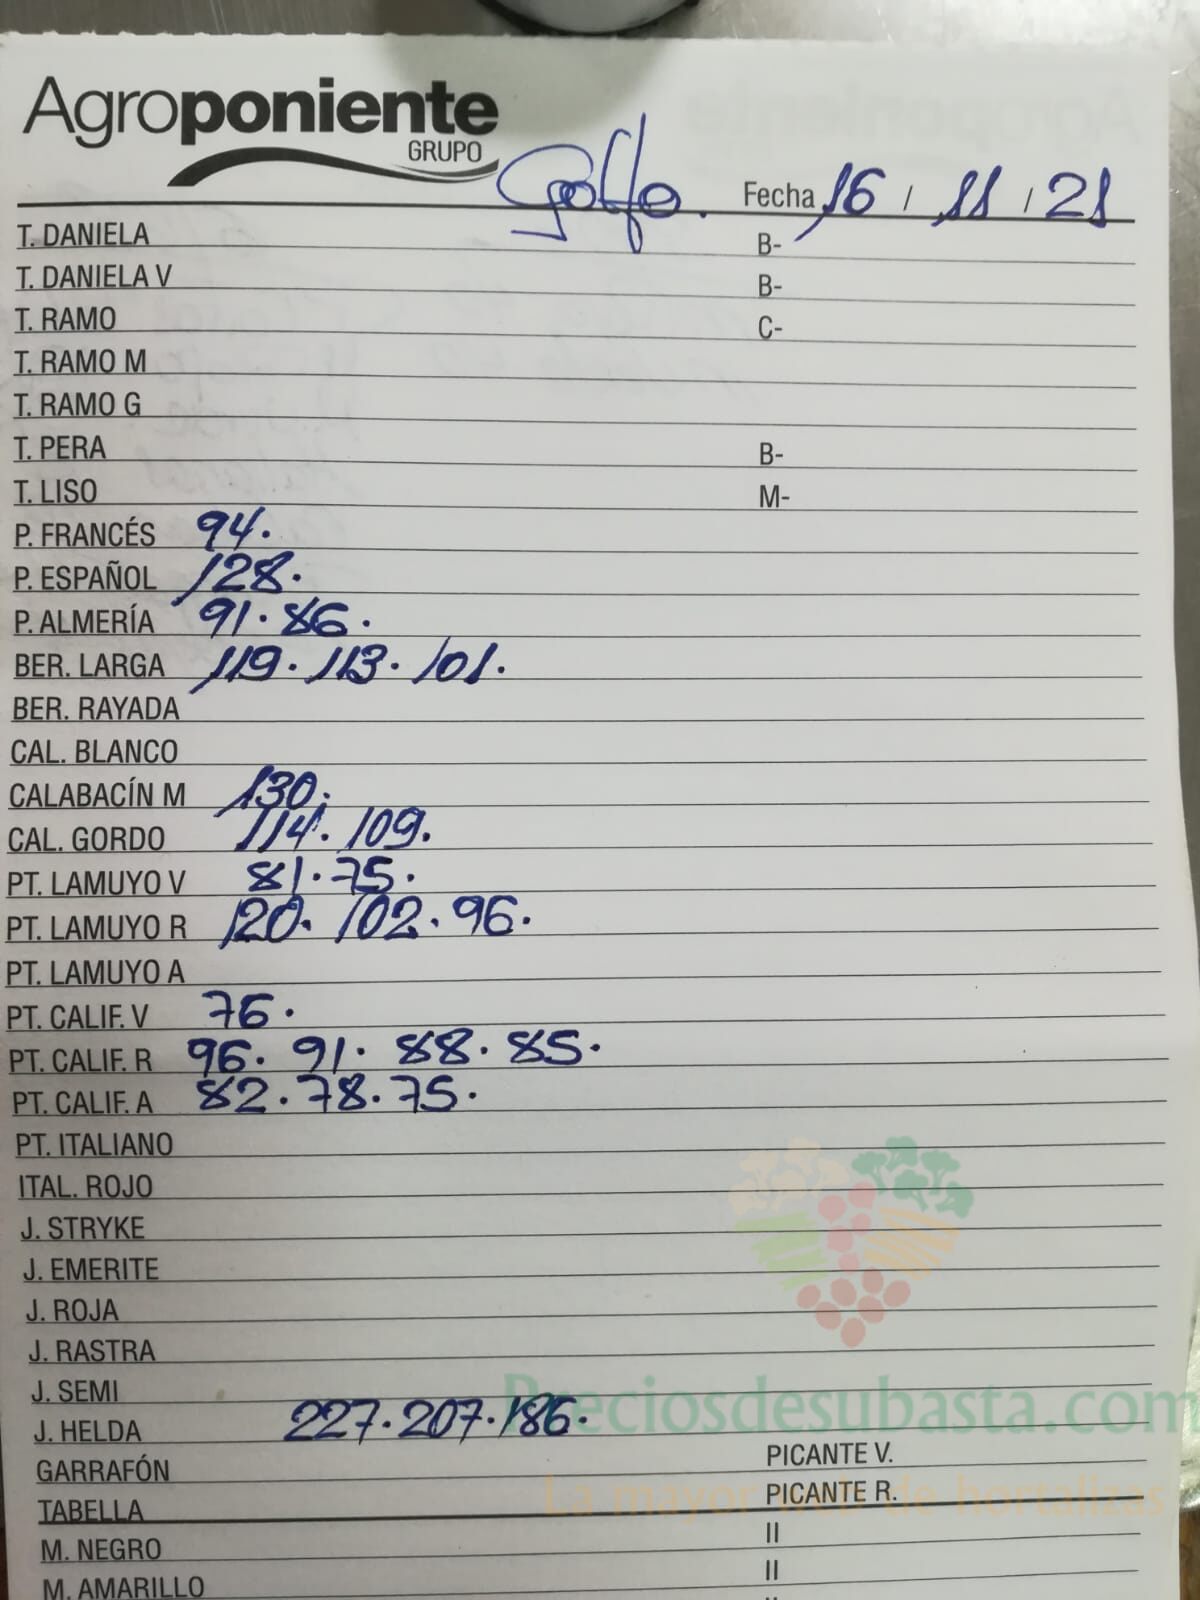 Agroponiente
GRUPO
Golfo. Fecha 16 / 11 / 21
T. DANIELA B-
T. DANIELA V B-
T. RAMO C-
T. RAMO M
T. RAMO G
T. PERA B-
T. LISO M-
P. FRANCÉS 94.
P. ESPAÑOL 128.
P. ALMERÍA 91. 86.
BER. LARGA 119. 113. 101.
BER. RAYADA
CAL. BLANCO
CALABACÍN M 130.
CAL. GORDO 114. 109.
PT. LAMUYO V 81. 75.
PT. LAMUYO R 120. 102. 96.
PT. LAMUYO A
PT. CALIF. V 76.
PT. CALIF. R 96. 91. 88. 85.
PT. CALIF. A 82. 78. 75.
PT. ITALIANO
ITAL. ROJO
J. STRYKE
J. EMERITE
J. ROJA
J. RASTRA
J. SEMI
Preciosdesubasta.com
J. HELDA 227. 207. 186.
GARRAFÓN PICANTE V.
La mayor web de hortalizas
TABELLA PICANTE R.
M. NEGRO II
M. AMARILLO II